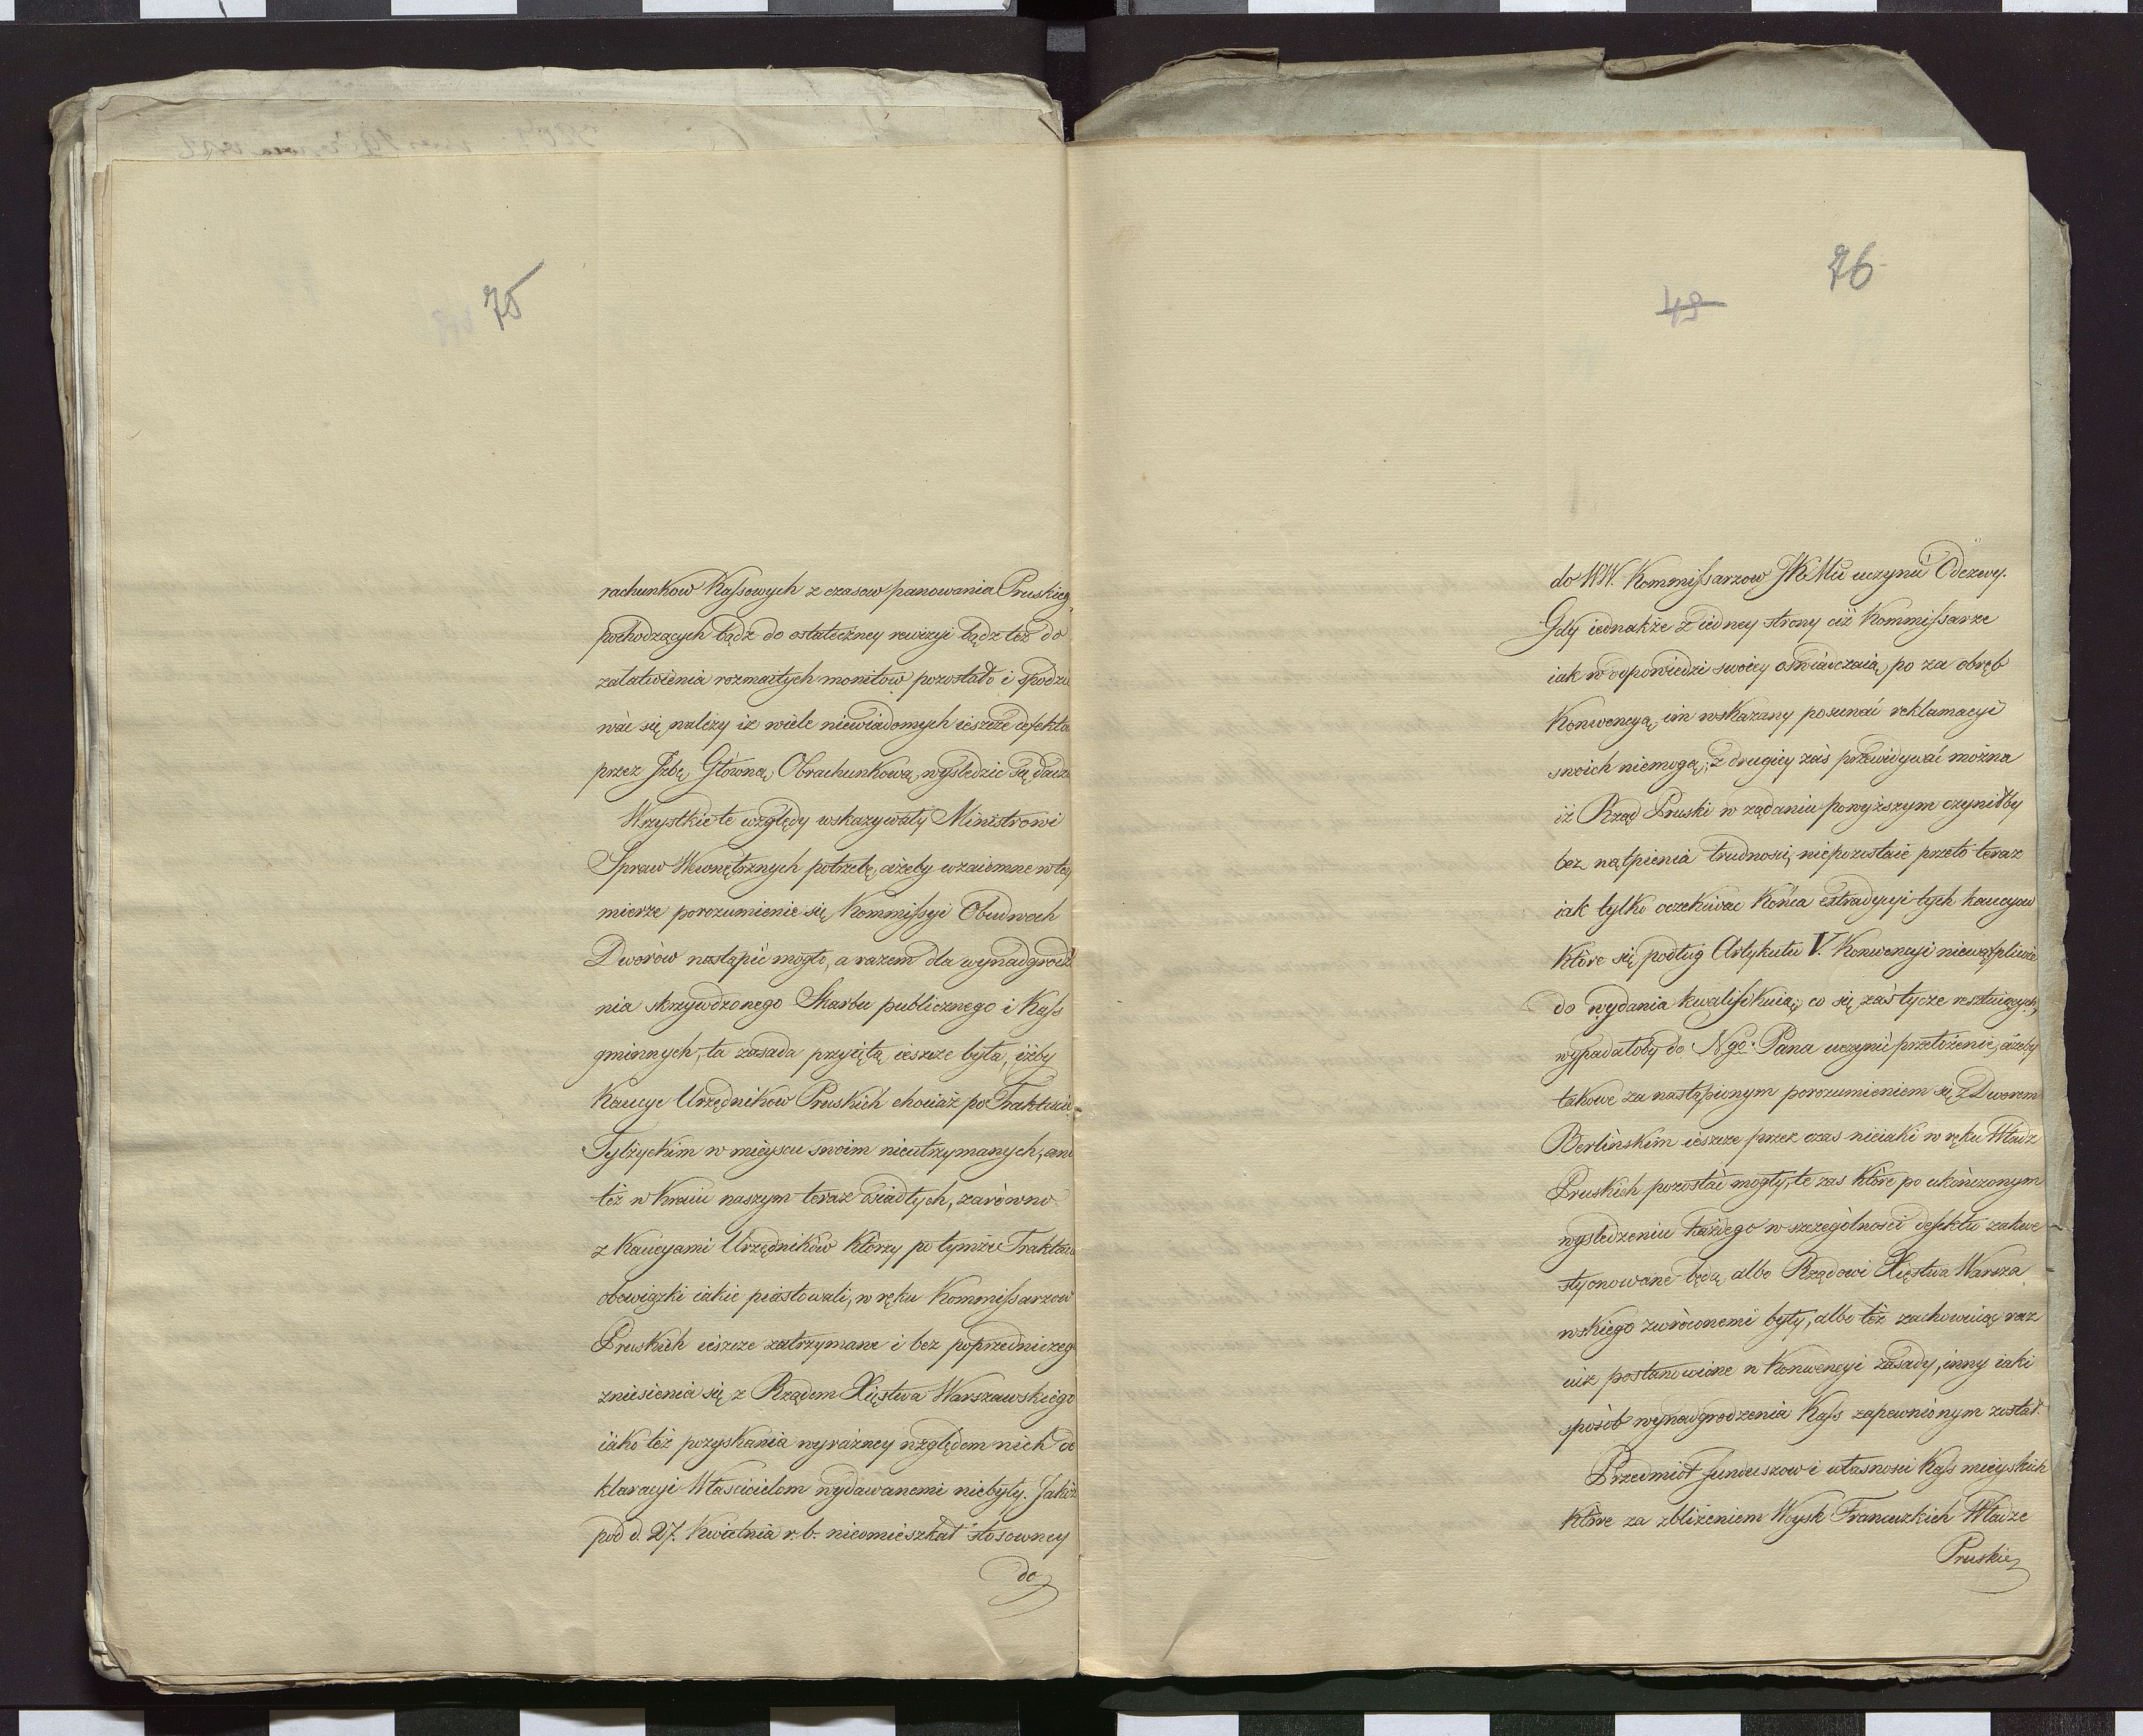 75
rachunkow Kassowych z czasow panowania Pruskieg
pochodzących bądź do ostateczney rewizyi bądz też do
załatwienia rozmaitych monitow pozostało i spodzie
wać się należy iż wiele niewiadomych ieszcze defekto
przez Jzbę Głowną Obrachunkową wysledzic się dadz
Wszystkie te względy wskazywały Ministrowi
Spraw Wewnętrznych potrzebę, ażeby wzaiemne w tey
mierze porozumienie się Kommissyi Obudwoch
Dworow nastąpić mogło, a razem dla wynadgrodz
nia skrzywdzonego Skarbu publicznego i Kass
gminnych, ta zasada przyiętą ieszcze była, iżby
Kaucye Urzędnikow Pruskich chociaż po Traktacie
Tylżyckim w mieyscu swoim nieutrzymanych, ani
też w Kraiu naszym teraz osiadłych, zarówno
z Kaucyami Urzędników którzy po tymże Traktaci
obowiązki iakie piastowali, w ręku Kommissarzow
Pruskich ieszcze zatrzymane i bez poprzedniczeg
zniesienia się z Rządem Xięstwa Warszawskiego
iako też pozyskania wyraźney względem nich de
klaracyi Właścicielom wydawanemi niebyły. Jakoż
pod d. 27. Kwietnia r. b. nieomieszkał stosowney
do
76
49
do WW. Kommissarzow JKMci uczynić Odezwy.
Gdy iednakże z iedney strony ciż Kommissarze
iak w odpowiedzi swoiey oswiadczaią, po za obręb
Konwencyą im wskazany posunąć reklamacyi
swoich niemogą; z drugiey zaś przewidywać można
iż Rząd Pruski w żądaniu powyższym czyniłby
bez wątpienia trudności, niepozostaie przeto teraz
iak tylko oczekiwać Końca extradycyi tych kaucyow
Które się podług Artykułu V. Konwencyi niewątpliwie
do wydania kwalifikuią; co się zaś tycze resztuiących,
wypadałoby do Ngo. Pana uczynić przełożenie, ażeby
takowe za nastąpionym porozumieniem się z Dworem
Berlinskim ieszcze przez czas nieiaki w ręku Władz
Pruskich pozostać mogły, te zas które po ukończonym
wysledzeniu każdego w szczególności defektu zakwe
styonowane będą, albo Rządowi Xięstwa Warsza
wskiego zwróconemi były, albo też zachowuiąc raz
iuż postanowione w Konwencyi zasady, inny iaki
sposób wynadgrodzenia Kass zapewnionym został.
Przedmiot funduszow i własności Kass mieyskich
Które za zbliżeniem Woysk Francuzkich Władze
Pruskie